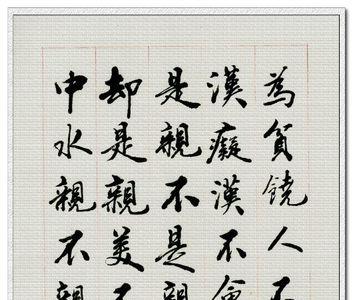 為貧饒人不
漢癡漢不會
是親不是親
却是親美不
中水親不親